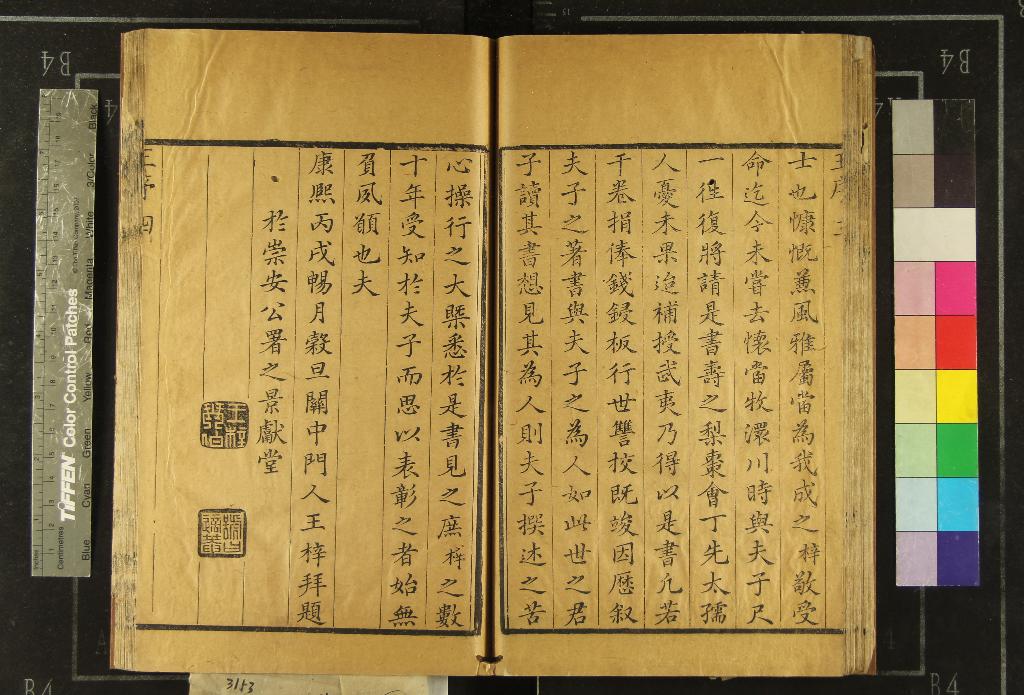 士也慷慨蕉風雅屬當為我成之梓敬受
命迄今未嘗去懷當牧澴川時與夫子尺
一往復將請是書壽之梨棗會丁先太孺
人憂未果迨補授武夷乃得以是書凢若
干卷捐俸錢鋟板行世讐挍既竣因歷叙
夫子之著書與夫子之為人如此世之君
子讀其書想見其為人則夫子撰述之苦
心操行之大槩悉於是書見之庶梓之數
十年受知於夫子而思以表彰之者始無
負夙願也夫
康熙丙戌暢月穀旦關中門人王梓拜題
於崇安公署之景獻堂
王序 四
B4
B4
B4
B4
TIFFEN Color Control Patches
© The Tiffen Company, 2007
Centimetres
Inches
Blue
Cyan
Green
Yellow
Red
Magenta
White
3/Color
Black
3153